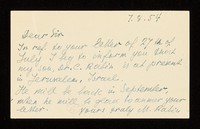 7.8.54
Dear Sir
In ref. to your letter of 27th of
July I beg to inform you that
my son, Dr. C. Rabin is at present
in Jerusalem, Israel.
He will be back in September,
when he will be glad to answer your
letter. Yours truly M. Rabin